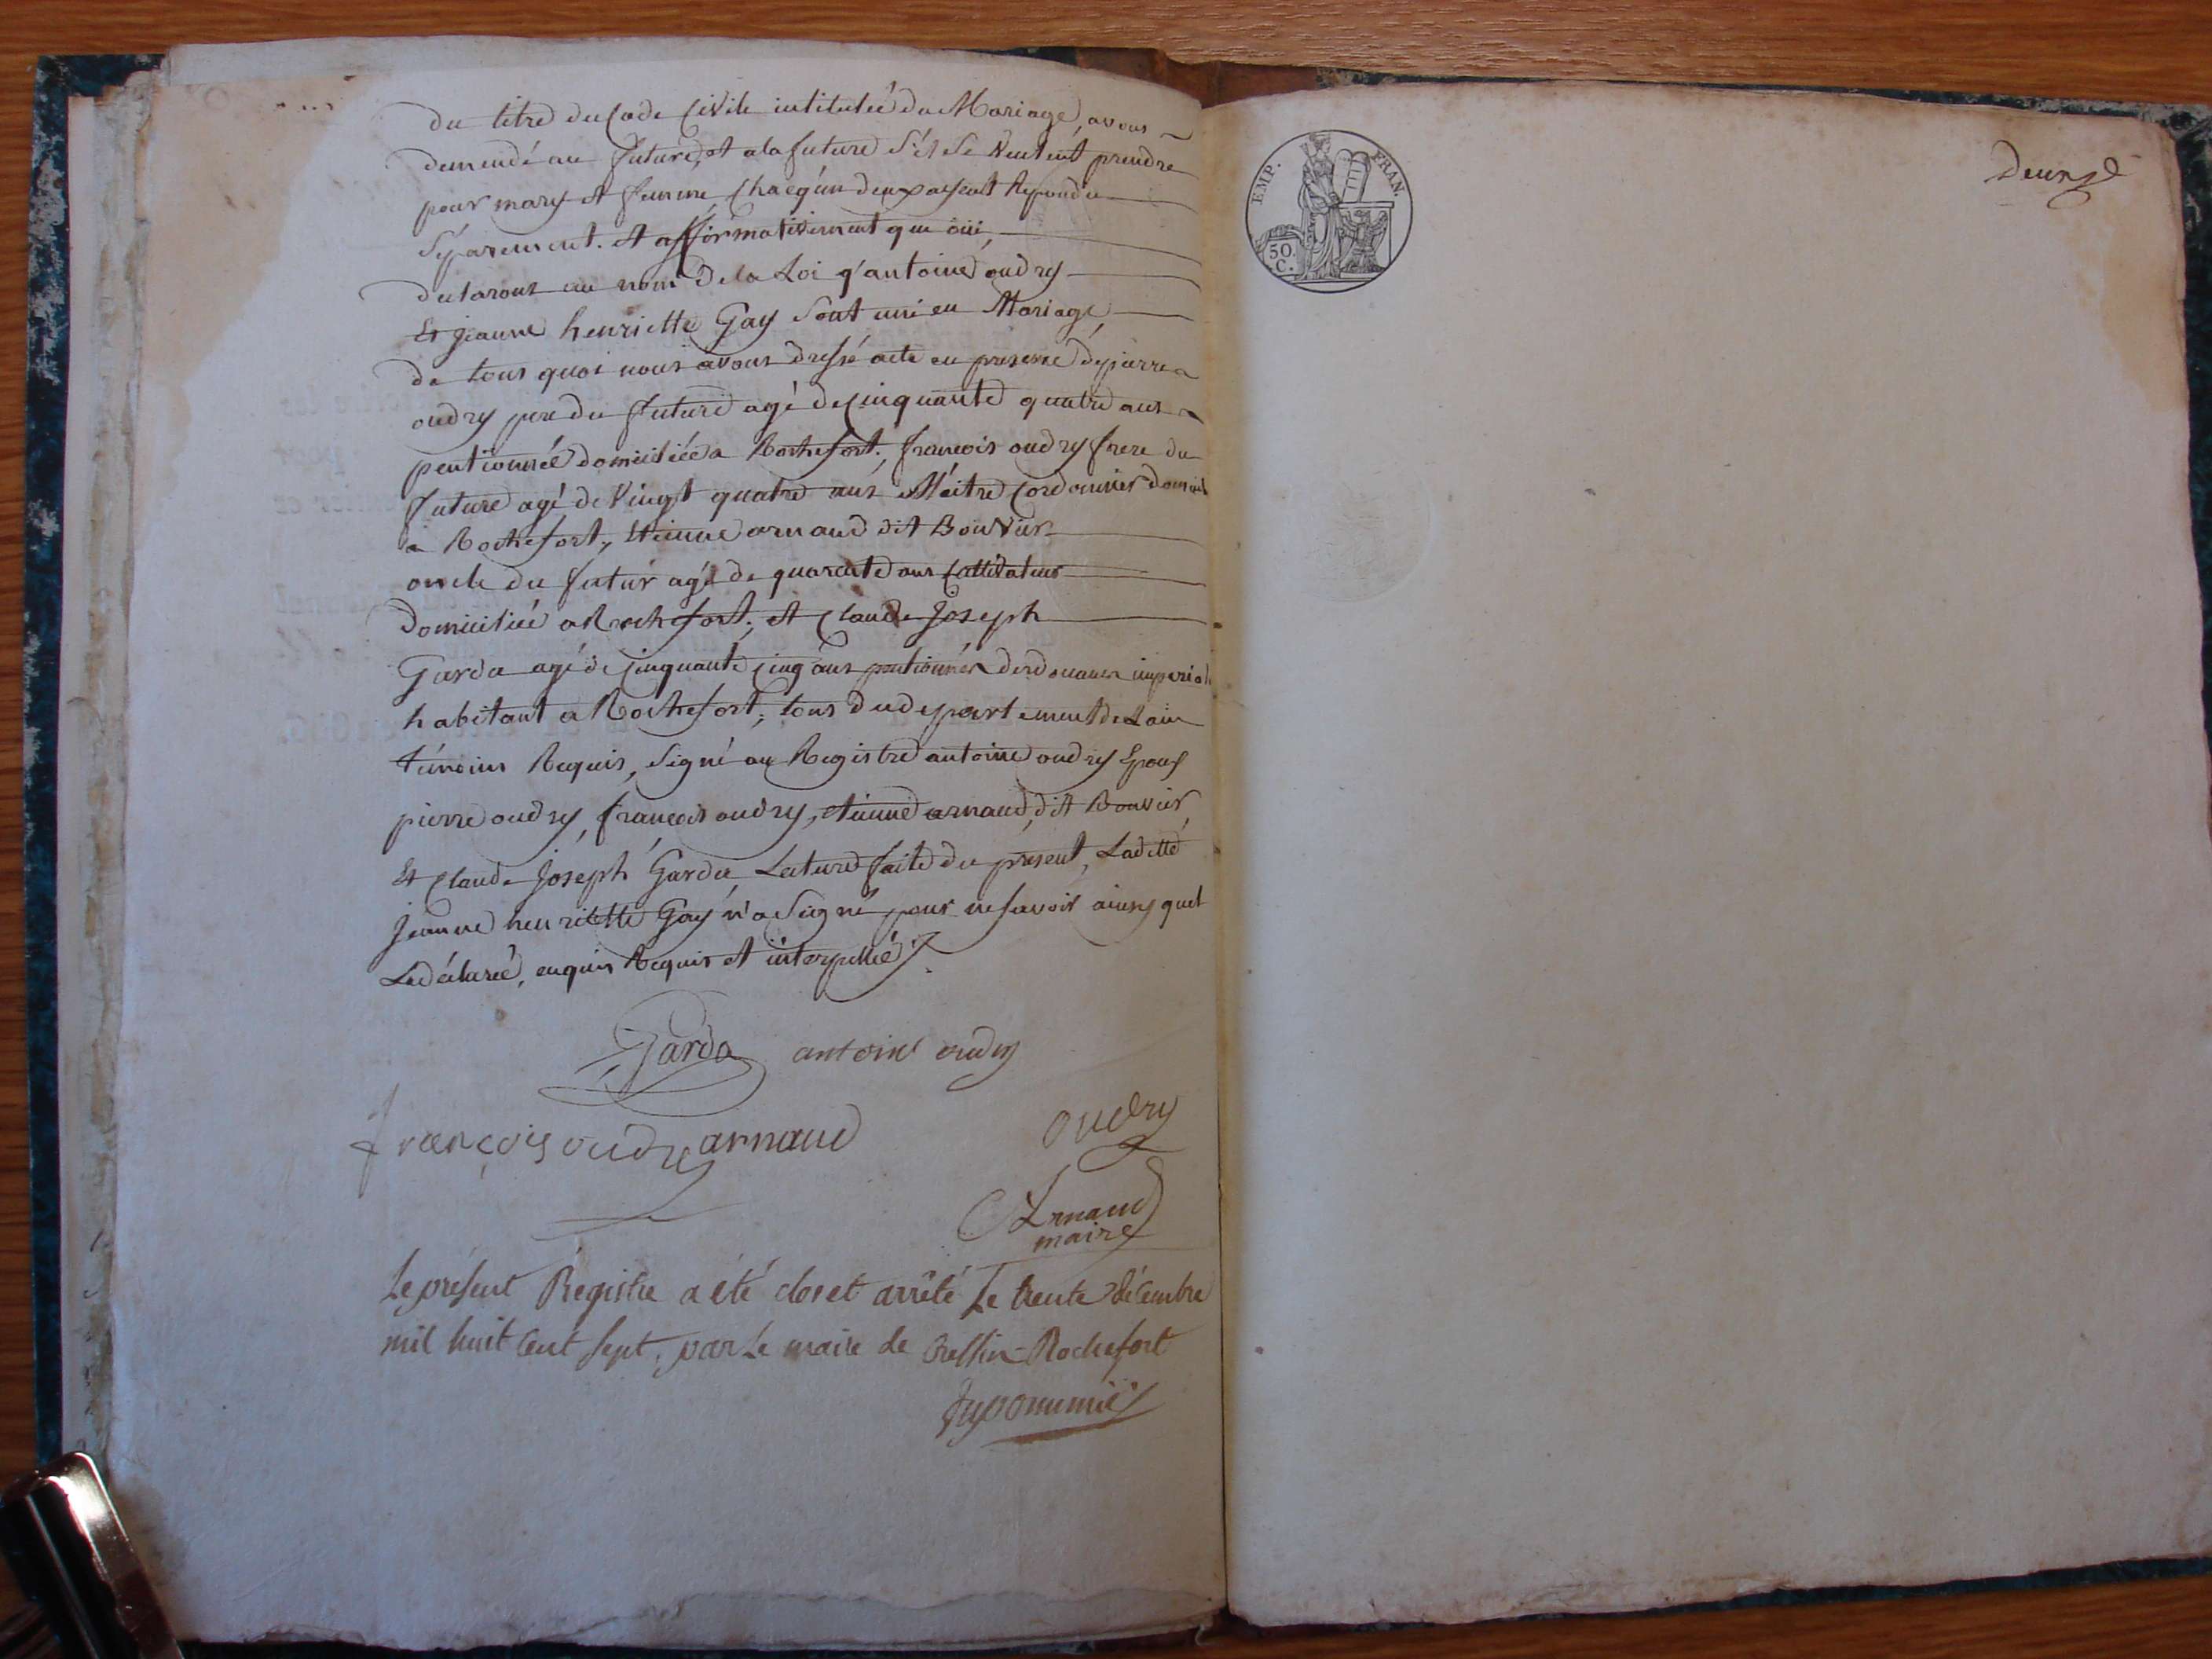 du titre du Code Civile intituleé du Mariage, avons
demendé au future, et a la future s'il se veulent prendre
pour mary et femme Chaq'un deux ayent repondu
séparement. et affirmativement que oüi,
declarons au nom de la Loi q'antoine oudry
Et jeanne henriette Gay sont uni en Mariage
de tous quoi nous avons dressé acte en presence de pierre
oudry pere du future agé de cinquante quatre ans
pentionneé domiciliée a Rochefort, francois oudry frere du
future agé de Vingt quatre ans Maitre Cordonnier domicil
a Rochefort, Etienne arnaud dit Bouvier
oncle du futur agé de quarente ans Cultivateur
domiciliée a Rochefort, et Claude Joseph
Garda agé de Cinquante Cinq ans pentionnér des douanes imperiale
habitant a Rochefort, tous du departement de Lain
témoins Requis, signé au Registre antoine oudry Epoux
pierre oudry, francois oudry, etienne arnaud, dit Bouvier,
Et Claude Joséph Garda, Lecture faite du présent, Laditte
Jeanne henriette Gay n'a signé pour ne savoir ainsy quel
La déclareé, enquis Requis et interpelleé
Garda antoine oudry
françois oudry arnaud oudry
Arnaud
maire
Le présent Régistre a été clos et arrêté Le trente décembre
mil huit Cent sept, par Le maire de Cressin-Rochefort
EMP. FRAN.
50.
C.